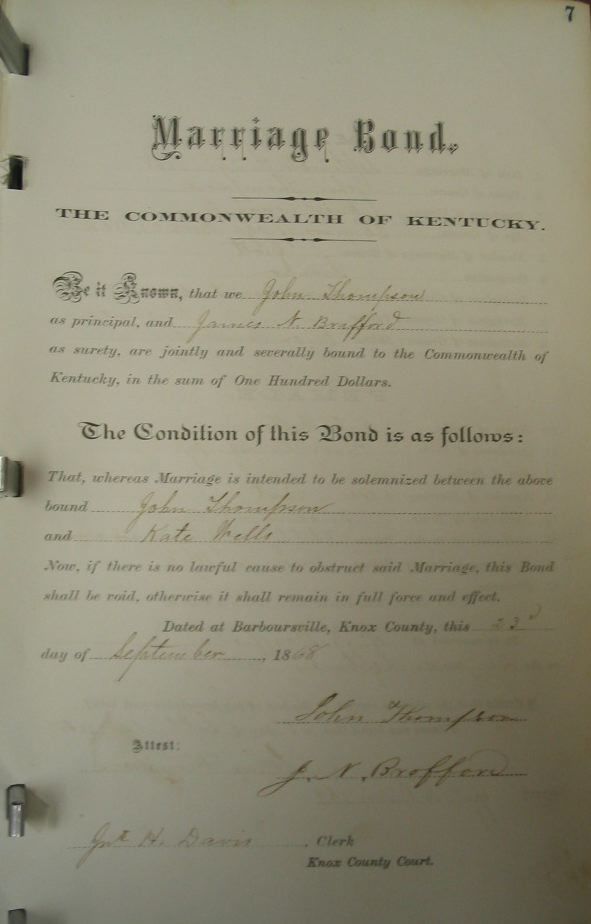 7
Marriage Bond.
THE COMMONWEALTH OF KENTUCKY.
Be it Known, that we John Thompson
as principal, and James N. Brafford
as surety, are jointly and severally bound to the Commonwealth of
Kentucky, in the sum of One Hundred Dollars.
The Condition of this Bond is as follows:
That, whereas Marriage is intended to be solemnized between the above
bound John Thompson
and Kate Wells
Now, if there is no lawful cause to obstruct said Marriage, this Bond
shall be void, otherwise it shall remain in full force and effect.
Dated at Barboursville, Knox County, this 23d
day of September, 1868
John Thompson
Attest:
J. N. Brofford
H. Davis, Clerk
Knox County Court.